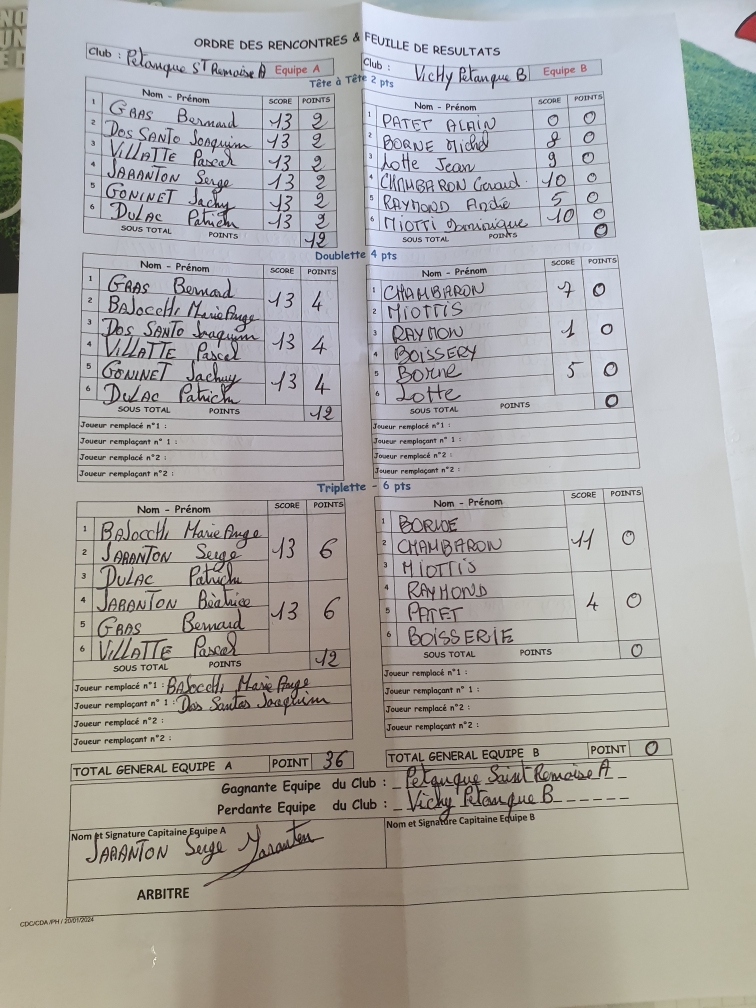 ORDRE DES RENCONTRES & FEUILLE DE RESULTATS
Club : Pétanque ST Remoise A Equipe A
Club : Vichy Pétanque B Equipe B
Tête à Tête 2 pts
Nom - Prénom SCORE POINTS
1 GRAS Bernard 13 2
2 DOS SANTO Joaquim 13 2
3 VILLATTE Pascal 13 2
4 JARANTON Serge 13 2
5 GONINET Jachy 13 2
6 DULAC Patrick 13 2
SOUS TOTAL POINTS 12
Nom - Prénom SCORE POINTS
1 PATET ALAIN 0 0
2 BORNE Michel 8 0
3 Lotte Jean 9 0
4 CHAMBARON Geraud 10 0
5 RAYMOND André 5 0
6 MIOTTI Dominique 10 0
SOUS TOTAL POINTS 0
Doublette 4 pts
Nom - Prénom SCORE POINTS
1 GRAS Bernard 13 4
2 BAJOCCHI Marie Ange
3 DOS SANTO Joaquim 13 4
4 VILLATTE Pascal
5 GONINET Jachuy 13 4
6 DULAC Patrick
SOUS TOTAL POINTS 12
Joueur remplacé n°1 :
Joueur remplaçant n° 1 :
Joueur remplacé n°2 :
Joueur remplaçant n°2 :
Nom - Prénom SCORE POINTS
1 CHAMBARON 7 0
2 MIOTTIS
3 RAYMON 1 0
4 BOISSERY
5 Borne 5 0
6 Lotte
SOUS TOTAL POINTS 0
Joueur remplacé n°1 :
Joueur remplaçant n° 1 :
Joueur remplacé n°2 :
Joueur remplaçant n°2 :
Triplette - 6 pts
Nom - Prénom SCORE POINTS
1 BAJOCCHI Marie Ange 13 6
2 JARANTON Serge
3 DULAC Patrick
4 JARANTON Béatrice 13 6
5 GRAS Bernard
6 VILLATTE Pascal
SOUS TOTAL POINTS 12
Joueur remplacé n°1 : BAJOCCHI Marie Ange
Joueur remplaçant n° 1 : Dos Santos Joaquim
Joueur remplacé n°2 :
Joueur remplaçant n°2 :
Nom - Prénom SCORE POINTS
1 BORNE 11 0
2 CHAMBARON
3 MIOTTIS
4 RAYMOND 4 0
5 PATET
6 BOISSERIE
SOUS TOTAL POINTS 0
Joueur remplacé n°1 :
Joueur remplaçant n° 1 :
Joueur remplacé n°2 :
Joueur remplaçant n°2 :
TOTAL GENERAL EQUIPE A POINT 36
TOTAL GENERAL EQUIPE B POINT 0
Gagnante Equipe du Club : Pétanque Saint Remoise A
Perdante Equipe du Club : Vichy Pétanque B
Nom et Signature Capitaine Equipe A
JARANTON Serge Jaranton
Nom et Signature Capitaine Equipe B
ARBITRE
CDC/CDA/PH / 20/01/2024